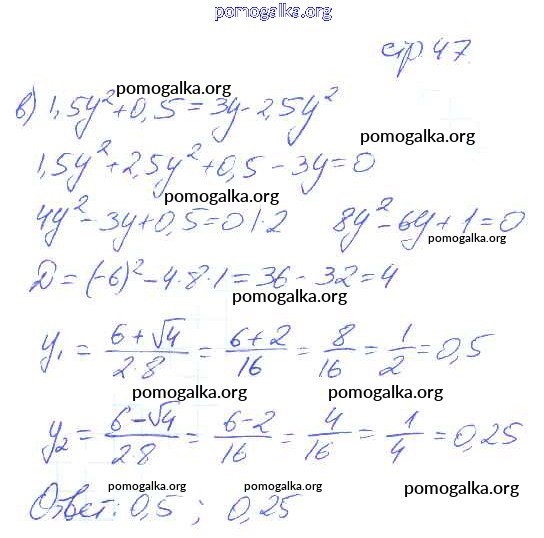 pomogalka.org
стр. 47.
pomogalka.org
в) 1,5y² + 0,5 = 3y - 2,5y²
pomogalka.org
1,5y² + 2,5y² + 0,5 - 3y = 0
pomogalka.org
4y² - 3y + 0,5 = 0 |·2 8y² - 6y + 1 = 0
pomogalka.org
D = (-6)² - 4·8·1 = 36 - 32 = 4
pomogalka.org
y₁ = (6 + √4)/(2·8) = (6+2)/16 = 8/16 = 1/2 = 0,5
pomogalka.org pomogalka.org
y₂ = (6 - √4)/(2·8) = (6-2)/16 = 4/16 = 1/4 = 0,25
pomogalka.org pomogalka.org
Ответ: 0,5 ; 0,25
pomogalka.org